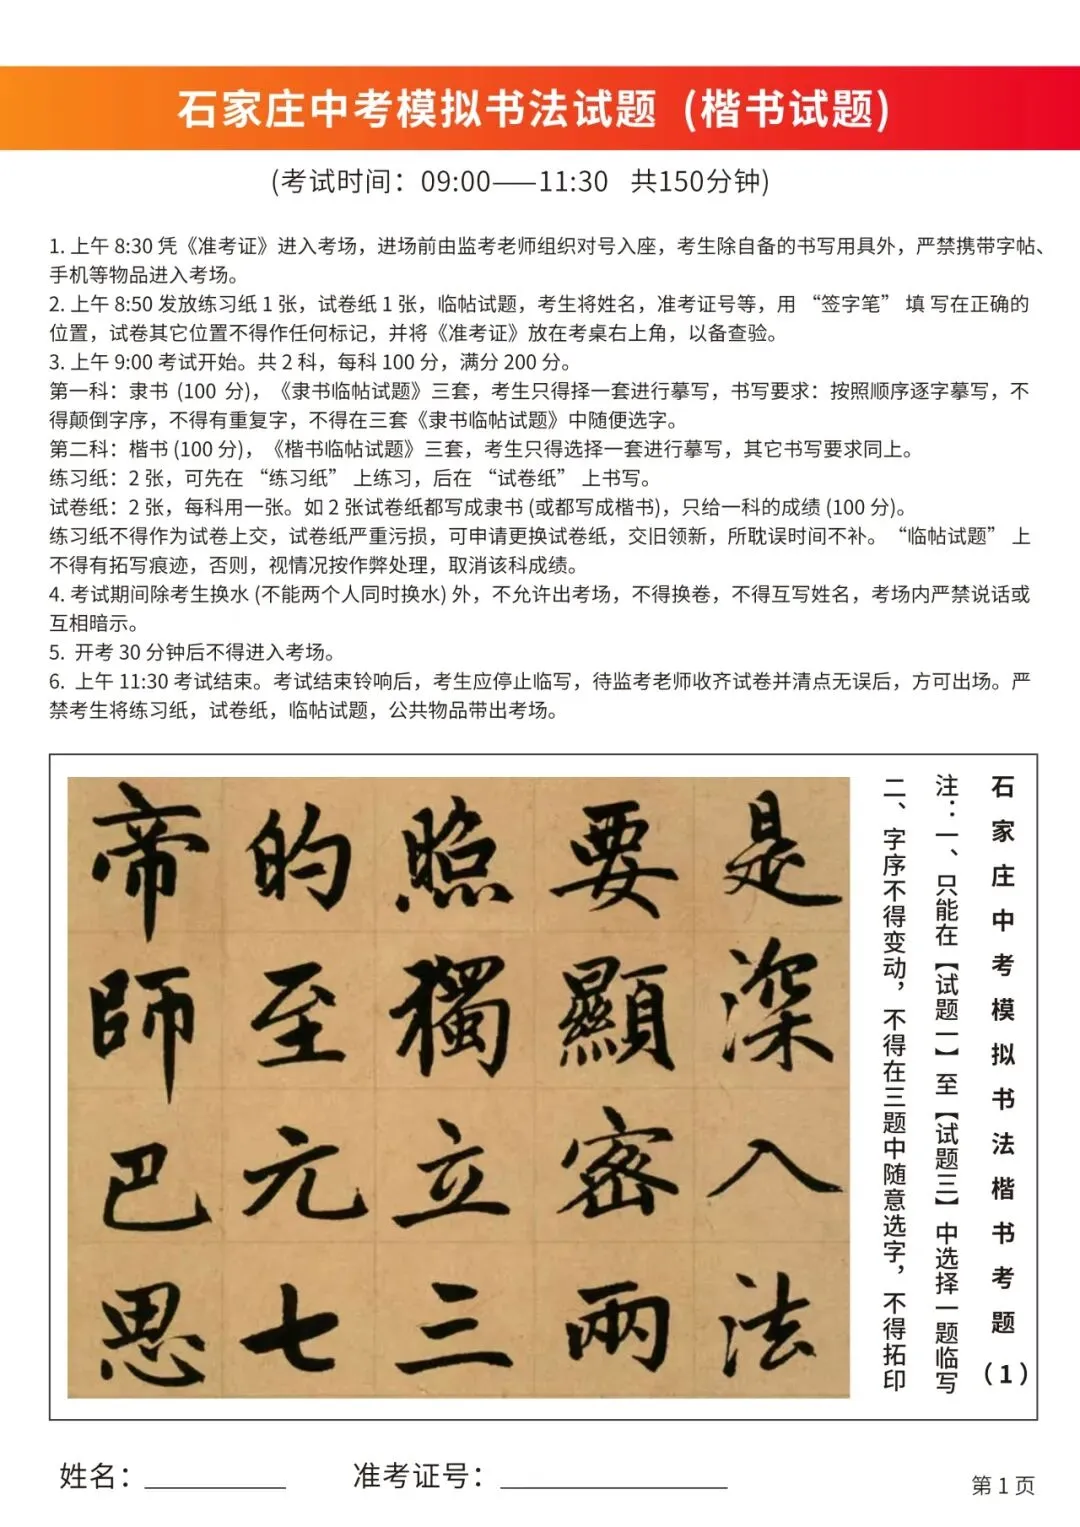 石家庄中考模拟书法试题 (楷书试题)
(考试时间：09:00——11:30 共150分钟)
1. 上午 8:30 凭《准考证》进入考场，进场前由监考老师组织对号入座，考生除自备的书写用具外，严禁携带字帖、
手机等物品进入考场。
2. 上午 8:50 发放练习纸 1 张，试卷纸 1 张，临帖试题，考生将姓名，准考证号等，用 “签字笔” 填 写在正确的
位置，试卷其它位置不得作任何标记，并将《准考证》放在考桌右上角，以备查验。
3. 上午 9:00 考试开始。共 2 科，每科 100 分，满分 200 分。
第一科：隶书 (100 分)，《隶书临帖试题》三套，考生只得择一套进行摹写，书写要求：按照顺序逐字摹写，不
得颠倒字序，不得有重复字，不得在三套《隶书临帖试题》中随便选字。
第二科：楷书 (100 分)，《楷书临帖试题》三套，考生只得选择一套进行摹写，其它书写要求同上。
练习纸：2 张，可先在 “练习纸” 上练习，后在 “试卷纸” 上书写。
试卷纸：2 张，每科用一张。如 2 张试卷纸都写成隶书 (或都写成楷书)，只给一科的成绩 (100 分)。
练习纸不得作为试卷上交，试卷纸严重污损，可申请更换试卷纸，交旧领新，所耽误时间不补。 “临帖试题” 上
不得有拓写痕迹，否则，视情况按作弊处理，取消该科成绩。
4. 考试期间除考生换水 (不能两个人同时换水) 外，不允许出考场，不得换卷，不得互写姓名，考场内严禁说话或
互相暗示。
5. 开考 30 分钟后不得进入考场。
6. 上午 11:30 考试结束。考试结束铃响后，考生应停止临写，待监考老师收齐试卷并清点无误后，方可出场。严
禁考生将练习纸，试卷纸，临帖试题，公共物品带出考场。
石家庄中考模拟书法楷书考题（1）
注：一、只能在【试题一】至【试题三】中选择一题临写
二、字序不得变动，不得在三题中随意选字，不得拓印
是深入法
要顯密兩
照獨立三
的至元七
帝師巴思
姓名：
准考证号：
第 1 页